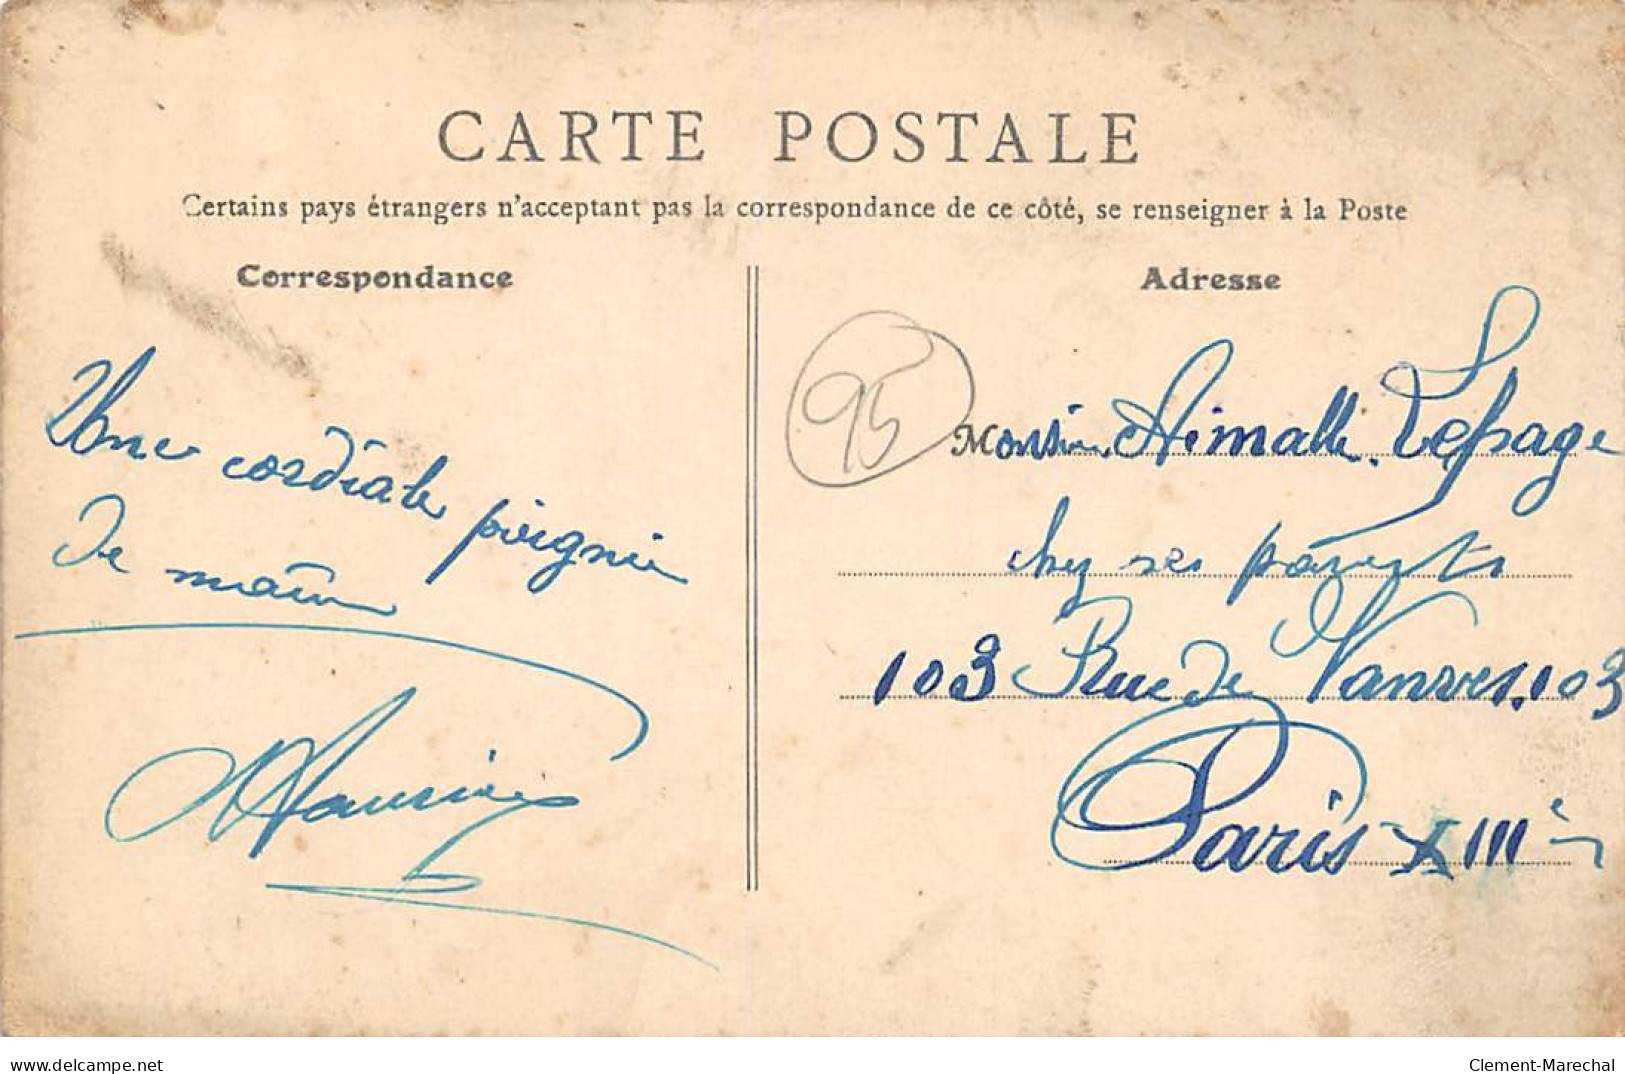 CARTE POSTALE
Certains pays étrangers n'acceptant pas la correspondance de ce côté, se renseigner à la Poste
Correspondance
Adresse
Une cordiale poignée
de main
95
Monsieur Lepage
chez ses parents
103 Rue de Vanves. 103
Paris XIIIe
delcampe.net
Clement-Marechal